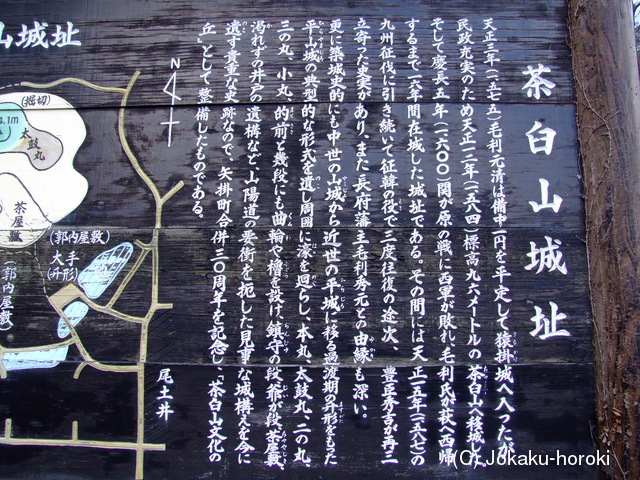 茶臼山城址
天正三年(一五七五)毛利元清は備中一円を平定して猿掛城へ入ったが
民政充実のため天正十二年(一五八四)標高九六メートルの茶臼山へ移城し
そして慶長五年(一六〇〇)関が原の戦に西軍が敗れ、毛利氏が萩へ西帰
するまで一六年間在城した城址である。その間には天正一五年(一五八七)の
九州征伐に引き続いて征韓の役で三度往復の途次、豊臣秀吉が再三
立寄った史実があり、また長府藩主毛利秀元との由縁も深い。
更に築城史的にも中世の山城から近世の平城に移る過渡期の丹形をもった
平山城の典型的な形式を遺し周囲に濠を廻らし、本丸、太鼓丸、二の丸、
三の丸、小丸、的前と幾段にも曲輪や櫓を設け、鎮守の段、爺が段、茶屋敷、
渇れずの井戸の遺構など山陽道の要衝を扼した見事な城構えを今に
遺す貴重な史跡なので、矢掛町合併三〇周年を記念し、「茶臼山文化の
丘」として整備したものである。
山城址
N
(掘切)
.1m
太鼓丸
茶屋敷
(郭内屋敷)
大手
(丹形)
(郭内屋敷)
尾土井
(C) Jokaku-horoki